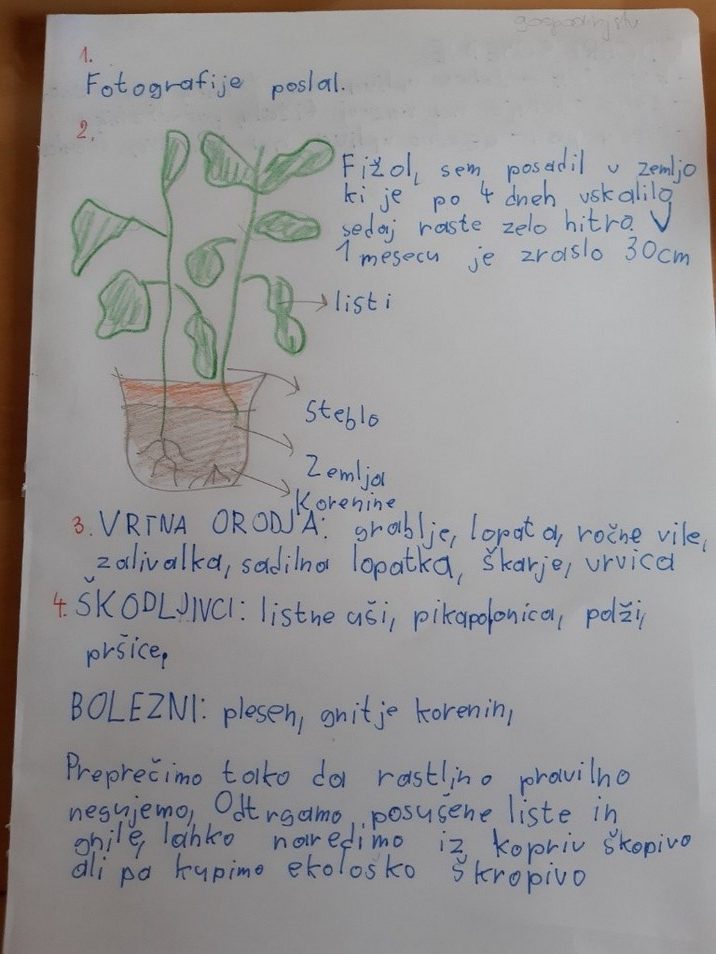 1.
Fotografije poslal.
2.
Fižol, sem posadil v zemljo
ki je po 4 dneh vskalilo
sedaj raste zelo hitro. V
1 mesecu je zraslo 30cm
listi
steblo
Zemlja
korenine
3. VRTNA ORODJA: grablje, lopata, ročne vile,
zalivalka, sadilna lopatka, škarje, vrvica
4. ŠKODLJIVCI: listne uši, pikapolonica, polži,
pršice,
BOLEZNI: plesen, gnitje korenin,
Preprečimo tako da rastlino pravilno
negujemo, Odtrgamo posušene liste in
gnile, lahko naredimo iz kopriv škopivo
ali pa kupimo ekološko škropivo